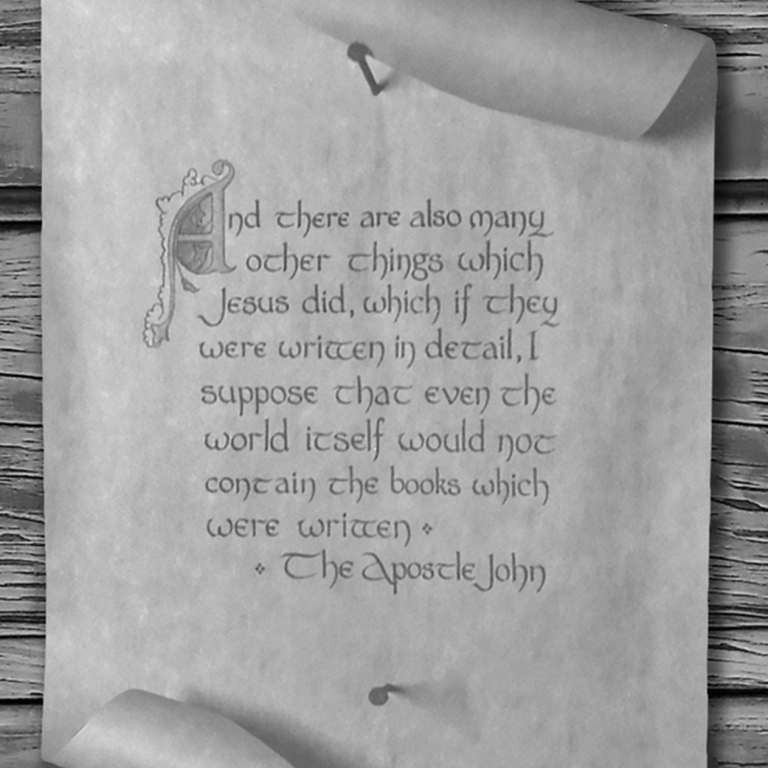 And there are also many
other things which
Jesus did, which if they
were written in detail, I
suppose that even the
world itself would not
contain the books which
were written
The Apostle John